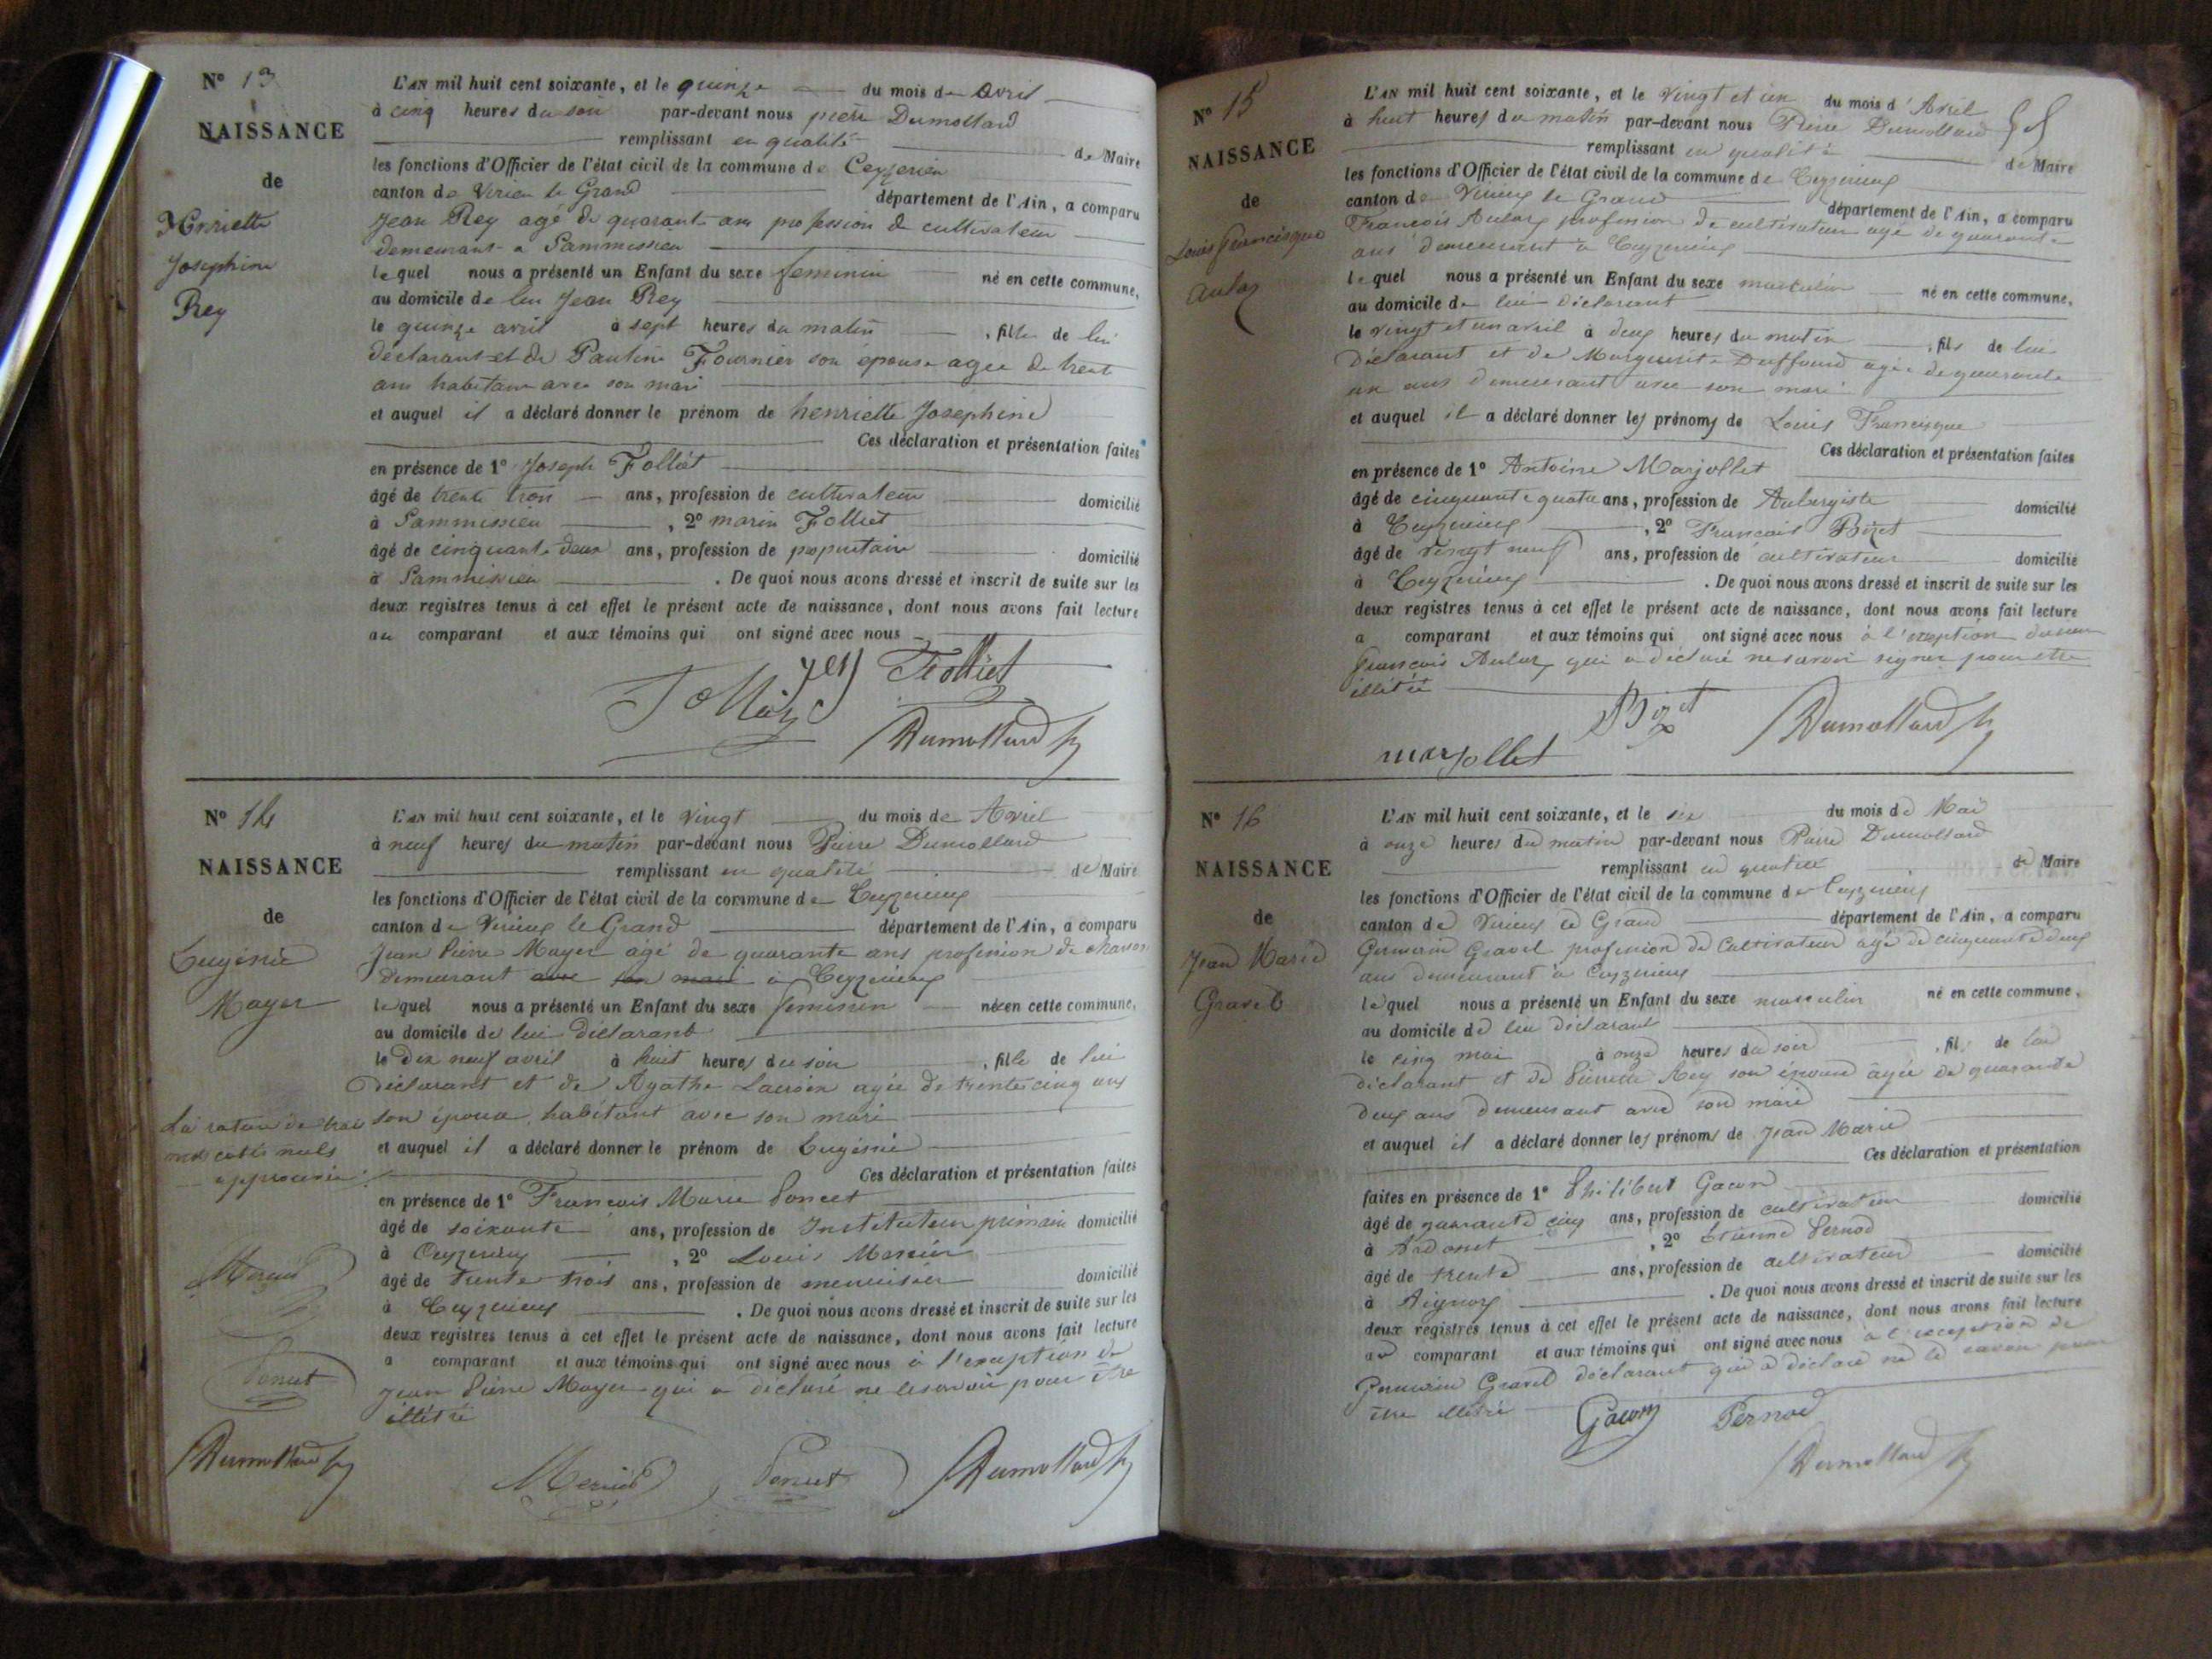 N° 13
NAISSANCE
de
Henriette
Josephine
Rey
L'AN mil huit cent soixante, et le quinze du mois de avril
à cinq heures du soir par-devant nous pierre Dumollard
remplissant en qualité de Maire
les fonctions d'Officier de l'état civil de la commune de Ceyzerieu
canton de Virieu le Grand département de l'Ain, a comparu
Jean Rey agé de quarante ans profession de cultivateur
demeurant a Sammissieu
lequel nous a présenté un Enfant du sexe feminin né en cette commune,
au domicile de lui Jean Rey
le quinze avril à sept heures du matin , fille de lui
déclarant et de Pauline Fournier son épouse agee de trente
ans habitant avec son mari
et auquel il a déclaré donner le prénom de henriette Josephine
Ces déclaration et présentation faites
en présence de 1° Joseph Folliet
âgé de trente trois ans, profession de cultivateur domicilié
à Sammissieu , 2° marin Folliet
âgé de cinquante deux ans, profession de propriétaire domicilié
à Sammissieu . De quoi nous avons dressé et inscrit de suite sur les
deux registres tenus à cet effet le présent acte de naissance, dont nous avons fait lecture
au comparant et aux témoins qui ont signé avec nous
rey Folliet
Folliet
Dumollard
N° 14
NAISSANCE
de
Eugénie
Mayer
L'AN mil huit cent soixante, et le vingt du mois de Avril
à neuf heures du matin par-devant nous Pierre Dumollard
remplissant en qualité de Maire
les fonctions d'Officier de l'état civil de la commune de Ceyzerieu
canton de Virieu le Grand département de l'Ain, a comparu
Jean Pierre Mayer agé de quarante ans profession de charron
demeurant avec son mari à Ceyzerieu
lequel nous a présenté un Enfant du sexe feminin née en cette commune,
au domicile de lui déclarant
le dix neuf avril à huit heures du soir , fille de lui
déclarant et de Agathe agée de trente cinq ans
son épouse habitant avec son mari
et auquel il a déclaré donner le prénom de Eugénie
Ces déclaration et présentation faites
en présence de 1° François Marie Poncet
âgé de soixante ans, profession de Instituteur primaire domicilié
à Ceyzerieu , 2° Louis
âgé de trente trois ans, profession de menuisier domicilié
à Ceyzerieu . De quoi nous avons dressé et inscrit de suite sur les
deux registres tenus à cet effet le présent acte de naissance, dont nous avons fait lecture
a comparant et aux témoins qui ont signé avec nous à l'exception de
Jean Pierre Mayer qui a déclaré ne le savoir pour être
illétré
La rature de trois
mots nuls
approuvée
Poncet
Dumollard
Poncet Dumollard
N° 15
NAISSANCE
de
Louis Francisque
Aulaz
L'AN mil huit cent soixante, et le vingt et un du mois d'Avril
à huit heures du matin par-devant nous Pierre Dumollard
remplissant en qualité de Maire
les fonctions d'Officier de l'état civil de la commune de Ceyzerieu
canton de Virieu le Grand département de l'Ain, a comparu
François Aulaz profession de cultivateur agé de quarante
ans demeurant à Ceyzerieu
lequel nous a présenté un Enfant du sexe masculin né en cette commune,
au domicile de lui déclarant
le vingt et un avril à deux heures du matin , fils de lui
déclarant et de Marguerite agée de quarante
un ans demeurant avec son mari
et auquel il a déclaré donner les prénoms de Louis Francisque
Ces déclaration et présentation faites
en présence de 1° Antoine Marjollet
âgé de cinquante quatre ans, profession de Aubergiste domicilié
à Ceyzerieu , 2° François Bizet
âgé de vingt neuf ans, profession de cultivateur domicilié
à Ceyzerieu . De quoi nous avons dressé et inscrit de suite sur les
deux registres tenus à cet effet le présent acte de naissance, dont nous avons fait lecture
a comparant et aux témoins qui ont signé avec nous à l'exception
François Aulaz qui a déclaré ne savoir signer pour etre
illétré
Bizet Dumollard
marjollet
N° 16
NAISSANCE
de
Jean Marie
Gravet
L'AN mil huit cent soixante, et le six du mois de Mai
à onze heures du matin par-devant nous Pierre Dumollard
remplissant en qualité de Maire
les fonctions d'Officier de l'état civil de la commune de Ceyzerieu
canton de Virieu le Grand département de l'Ain, a comparu
Germain Gravet profession de Cultivateur agé de cinquante deux
ans demeurant à Ceyzerieu
lequel nous a présenté un Enfant du sexe masculin né en cette commune,
au domicile de lui déclarant
le cinq mai à onze heures du soir , fils de lui
déclarant et de Pierrette Rey son épouse agée de quarante
deux ans demeurant avec son mari
et auquel il a déclaré donner les prénoms de Jean Marie
Ces déclaration et présentation
faites en présence de 1° Philibert Gacon
âgé de quarante cinq ans, profession de cultivateur domicilié
à Ardosset , 2° Etienne Pernod
âgé de trente ans, profession de cultivateur domicilié
à Aignoz . De quoi nous avons dressé et inscrit de suite sur les
deux registres tenus à cet effet le présent acte de naissance, dont nous avons fait lecture
au comparant et aux témoins qui ont signé avec nous à l'exception de
Germain Gravet déclarant qui a déclaré ne le savoir pour
être illétré
Gacon Pernod
Dumollard